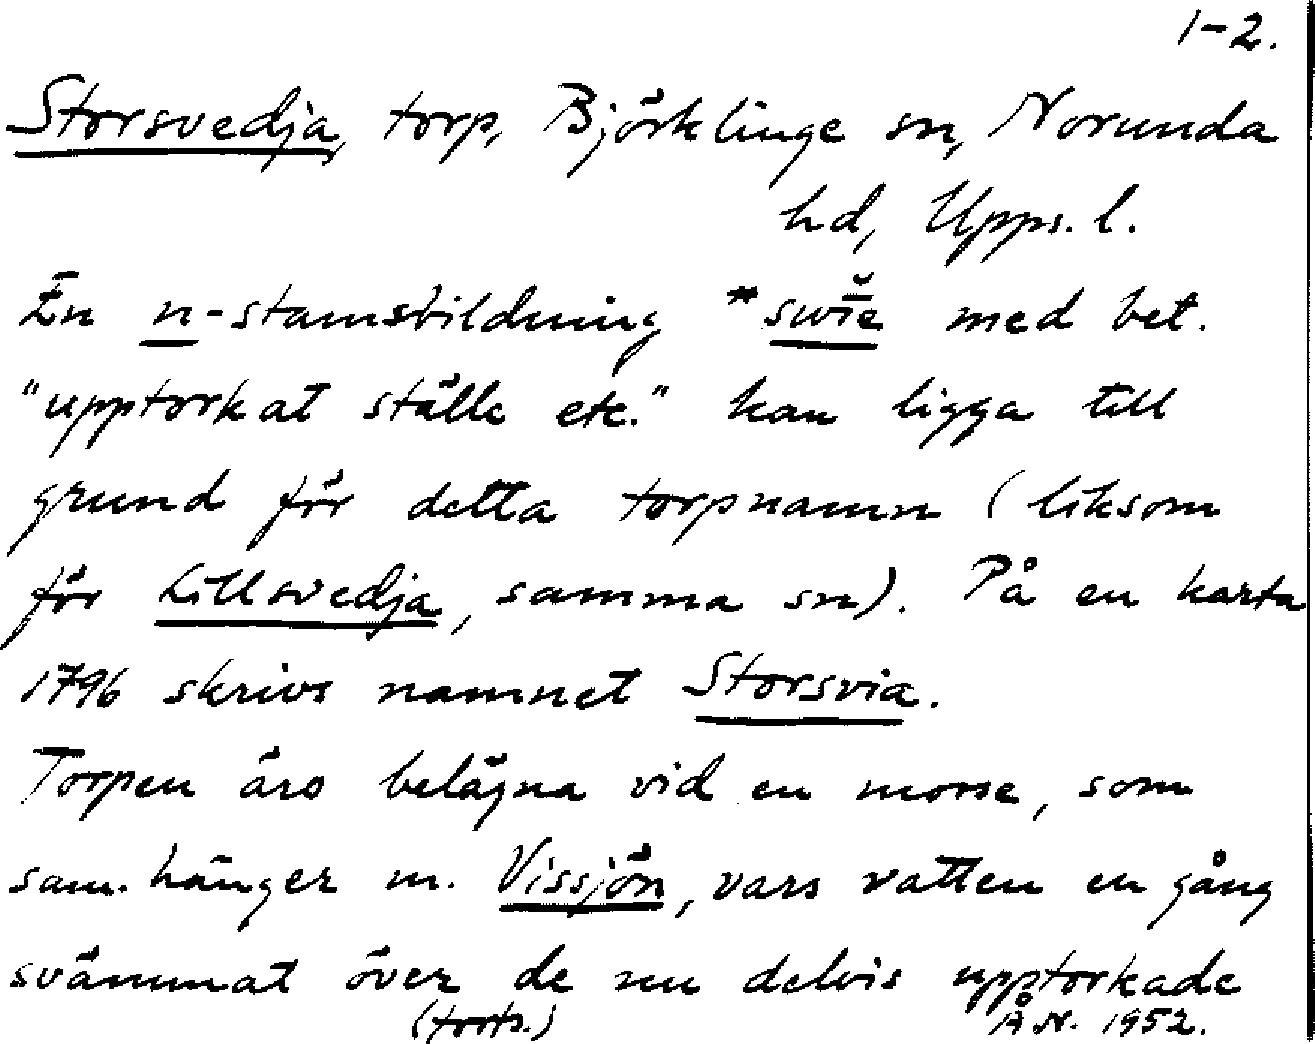 1-2.
Storsvedja, torp, Björklinge sn, Norunda
hd, Upps. l.
En n-stamsbildning *swī̆e med bet.
"upptorkat ställe etc." kan ligga till
grund för detta torpnamn (liksom
för Lillsvedja, samma sn). På en karta
1796 skrivs namnet Storsvia.
Torpen äro belägna vid en mosse, som
sam. hänger m. Vissjön, vars vatten en gång
svämmat över de nu delvis upptorkade
(forts.) Å N. 1952.